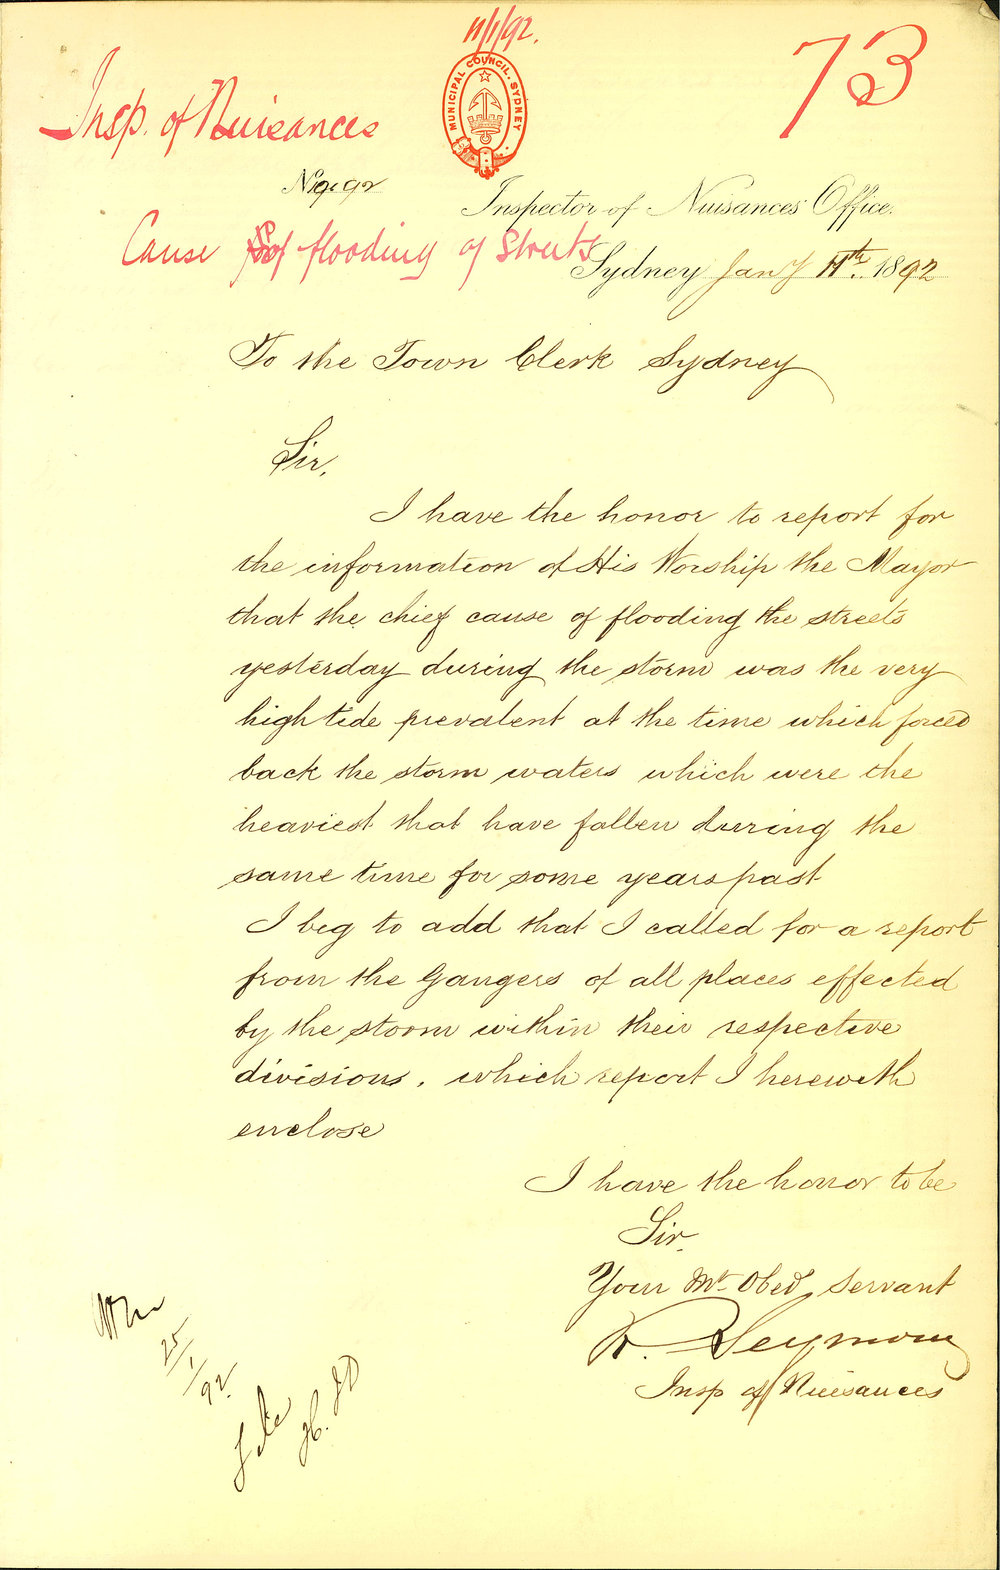 11/1/92.
73
MUNICIPAL COUNCIL. SYDNEY
Insp. of Nuisances
No 9. 92
Inspector of Nuisances Office.
Cause of flooding of Streets
Sydney Jany 11th. 1892
To the Town Clerk Sydney
Sir,
I have the honor to report for
the information of His Worship the Mayor
that the chief cause of flooding the streets
yesterday during the storm was the very
high tide prevalent at the time which forced
back the storm waters which were the
heaviest that have fallen during the
same time for some years past
I beg to add that I called for a report
from the Gangers of all places effected
by the storm within their respective
divisions. which report I herewith
enclose
I have the honor to be
Sir,
Your Mt. Obed Servant
R. Seymour
Insp of Nuisances
25/1/92
File